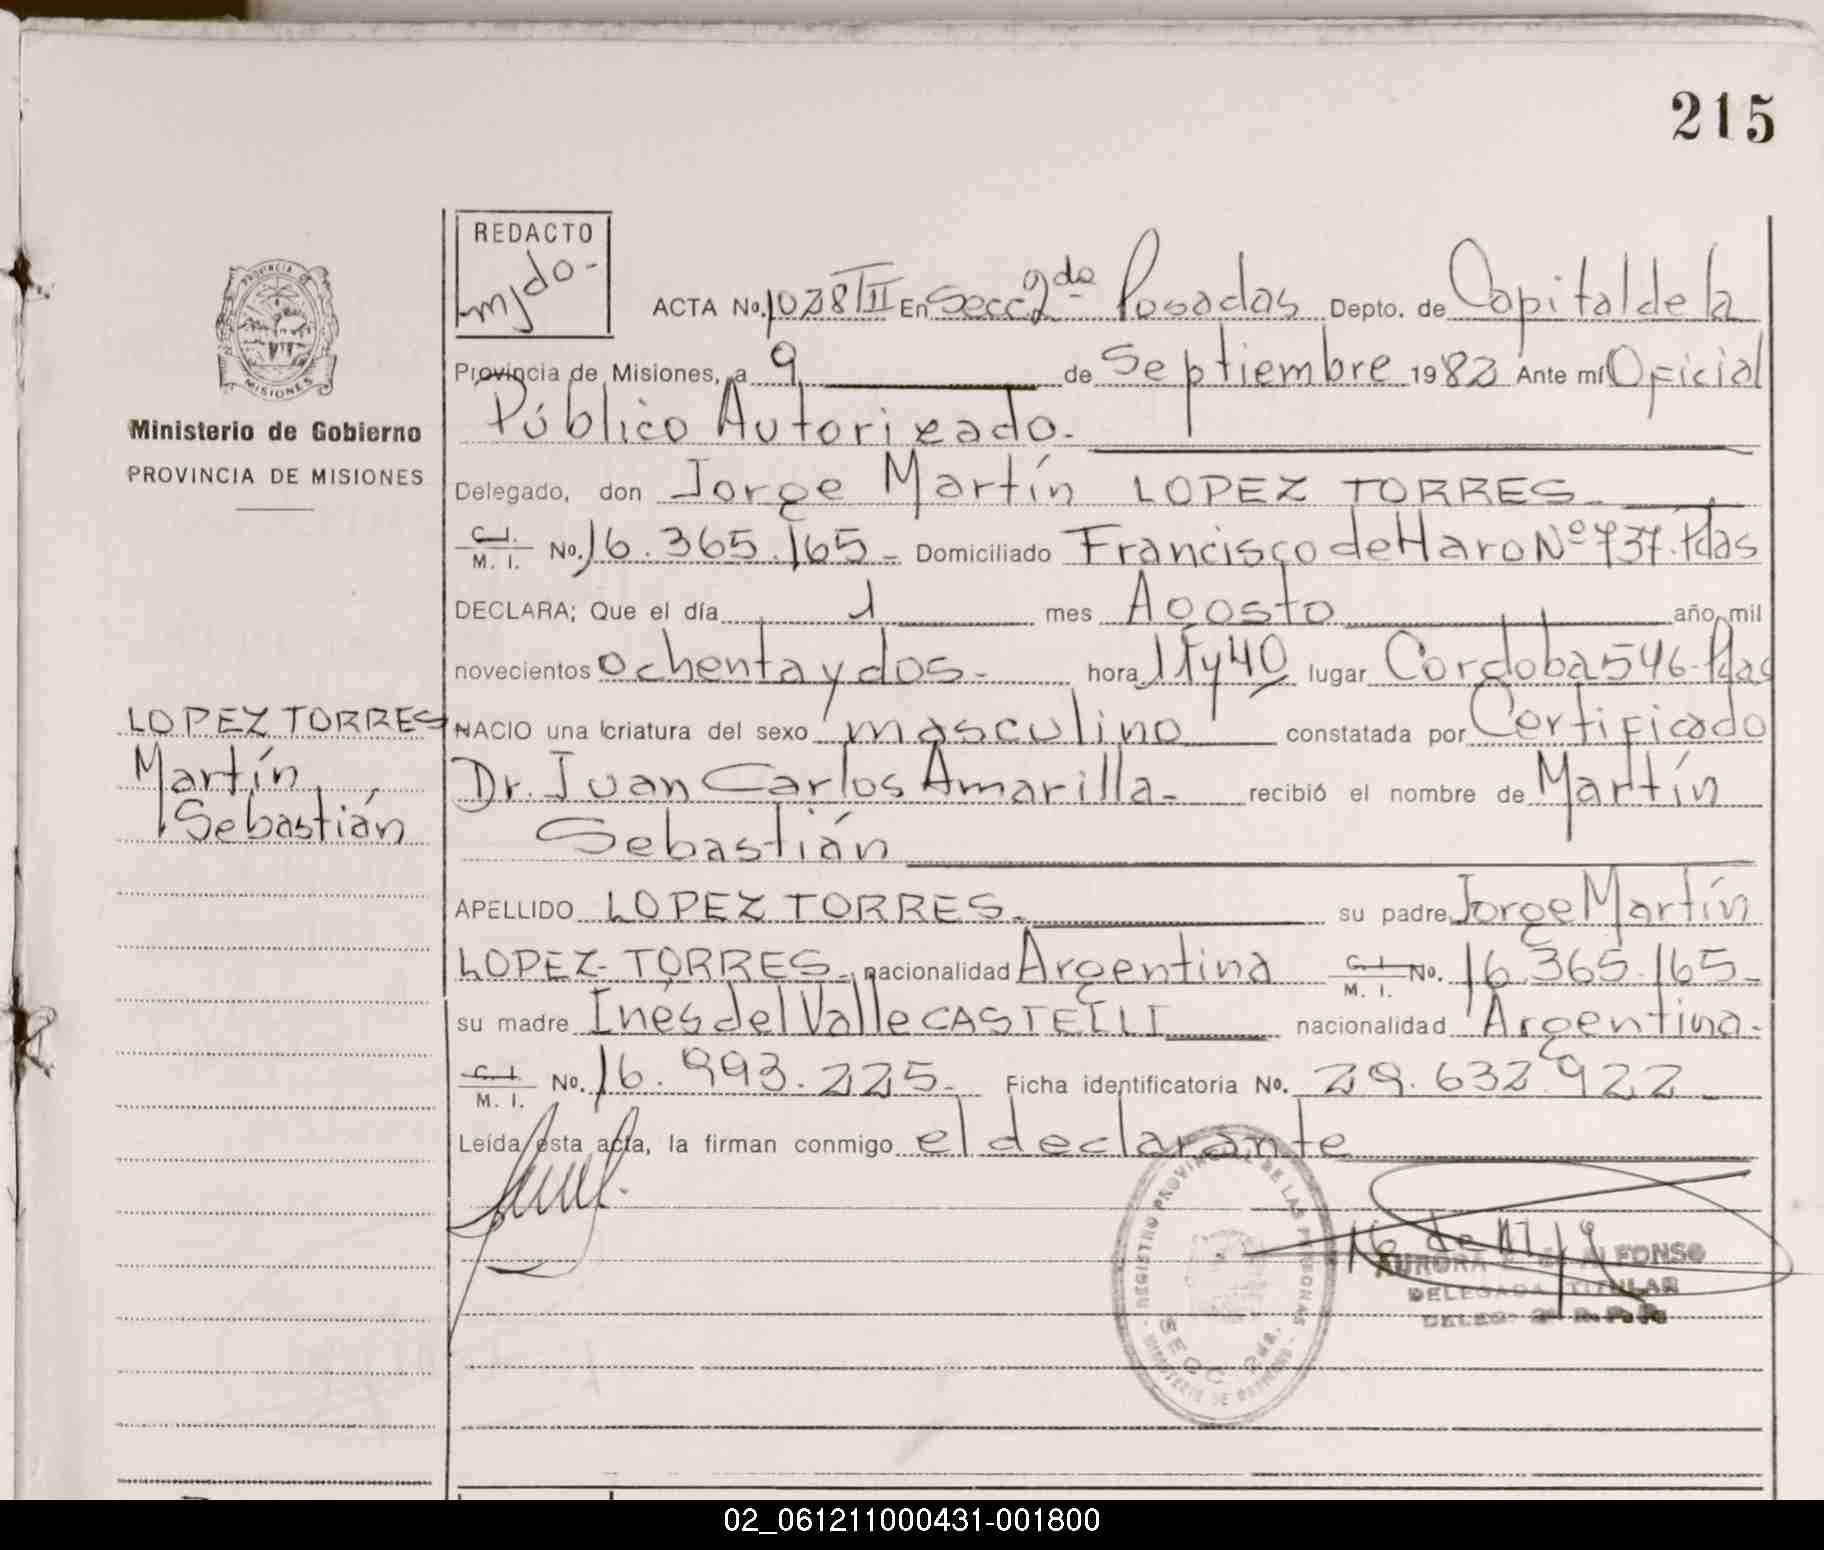 215
REDACTO
mjdo-
ACTA No. 1028/II En Secc 2da Posadas Depto. de Capital de la
Provincia de Misiones, a 9 de Septiembre 1982 Ante mí Oficial
Público Autorizado.-
Delegado, don Jorge Martín LOPEZ TORRES.-
C. I.
M. I. No. 16.365.165.- Domiciliado Francisco de Haro Nº 737. Pdas
DECLARA; Que el día 1 mes Agosto año mil
novecientos ochenta y dos.- hora 11 y 40 lugar Cordoba 546-Pdas
NACIO una criatura del sexo masculino constatada por Certificado
Dr. Juan Carlos Amarilla.- recibió el nombre de Martín
Sebastián
APELLIDO LOPEZ TORRES.- su padre Jorge Martín
LOPEZ-TORRES.- nacionalidad Argentina C. I. No. 16.365.165.-
M. I.
su madre Inés del Valle CASTELLI nacionalidad Argentina.-
C. I.
M. I. No. 16.993.225.- Ficha identificatoria No. 29.632.922.-
Leída esta acta, la firman conmigo el declarante
PROVINCIA DE
MISIONES
Ministerio de Gobierno
PROVINCIA DE MISIONES
LOPEZ TORRES
Martín
Sebastián
REGISTRO PROVINCIAL DE LAS PERSONAS
SECC. 2da.
MINISTERIO DE GOBIERNO
AURORA ALFONSO
DELEGADA TITULAR
DELEG. 2ª R. P. P.
02_061211000431-001800